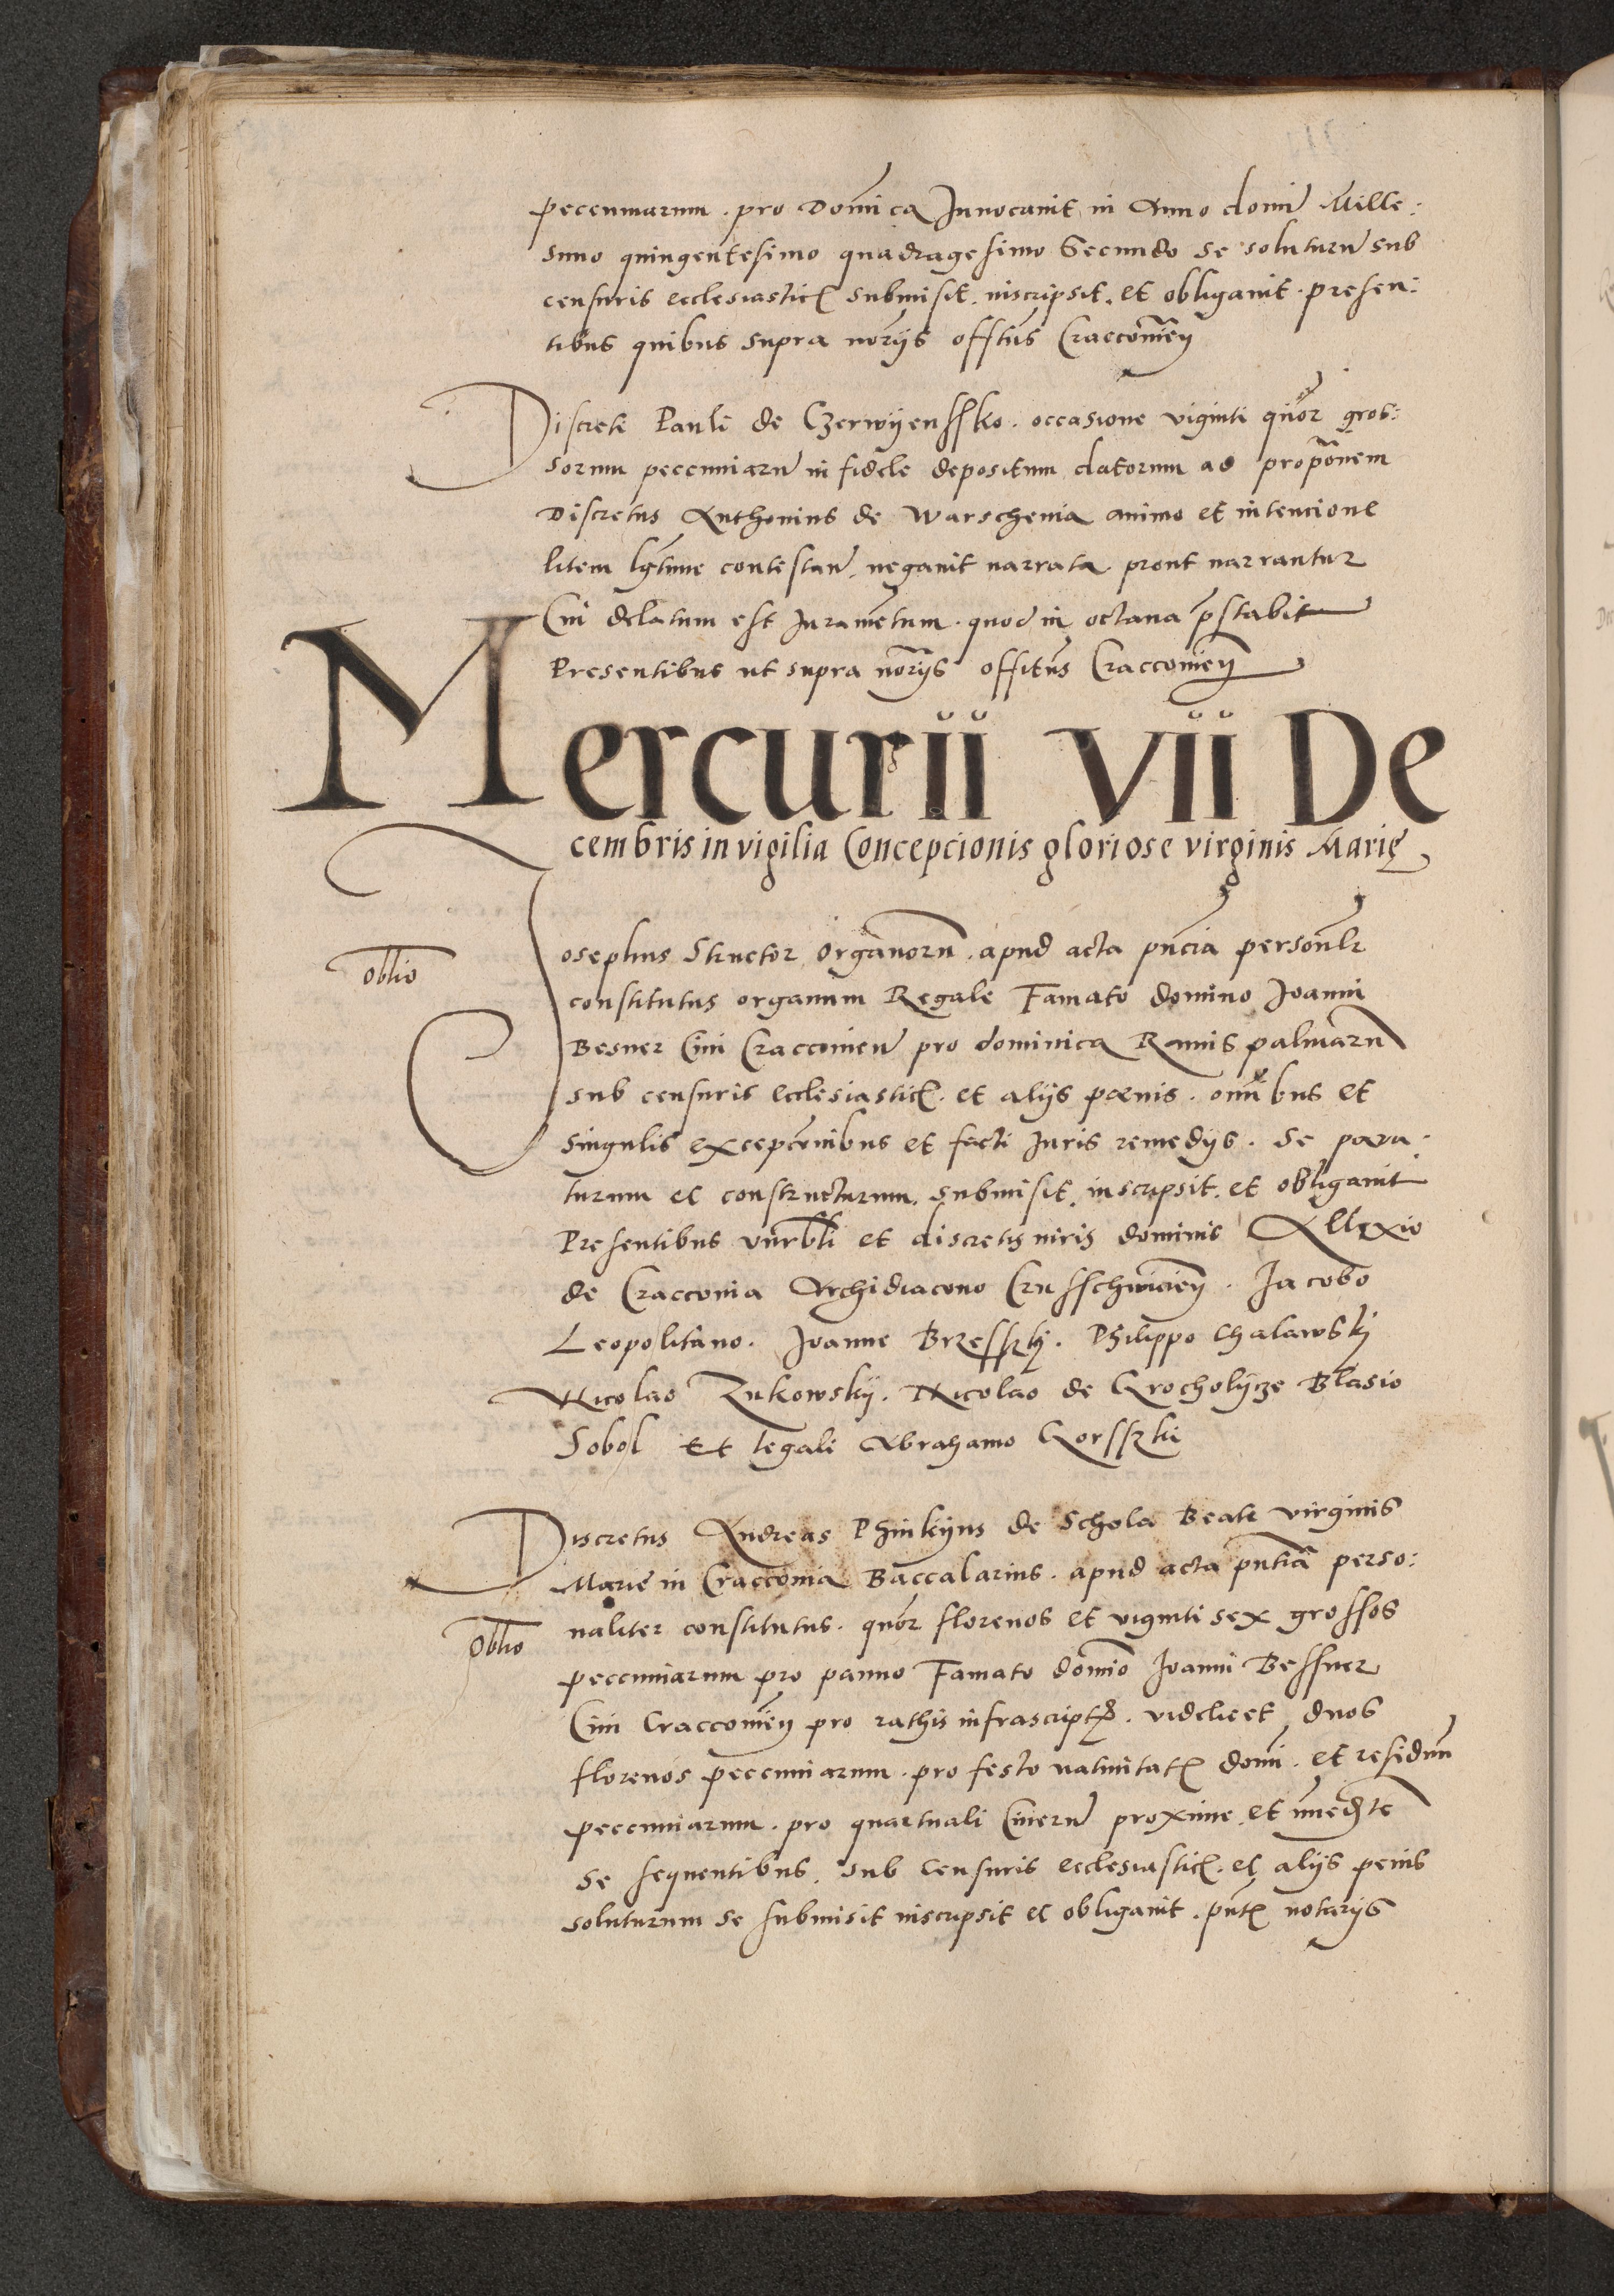 pecuniarum . pro Dominica Inuocauit in Anno domini Mille:
simo quingentesimo quadragesimo Secundo se soluturum sub
censuris ecclesiasticis submisit . inscripsit . et obligauit . presen:
tibus quibus supra notarijs offitus Craccouien
Discreti Pauli de Czerwyenssko . occasione viginti quatuor gros:
sorum pecuniarum in fidele depositum datorum ad propositionem
Discretus Anthonius de Warschouia animo et intencione
litem legitime contestandi . negauit narrata prout narrantur
Cui delatum est Iuramentum . quod in octaua prestabit
Presentibus ut supra notarijs offitus Craccouien
Mercurii vii De
cembris in vigilia Concepcionis gloriose virginis Marię
Iosephus Structor organorum . apud acta presencia personaliter
oblio
constitutus organum Regale Famato domino Joanni
Besner Ciui Craccouien pro dominica Ramis palmarum
sub censuris ecclesiasticis . et alijs poenis . omnibus et
singulis excepcionibus et facti Iuris remedijs . se para:
turum et constructurum . submisit . inscripsit . et obligauit
Presentibus venerabili et discretis viris dominis Allexio
de Cracouia Archidiacono Crusschwicien . Jacobo
Leopolitano . Joanne Brzesskj . Philippo Chalawskj
Nicolao Zukowskij . Nicolao de Grocholycze Blasio
Sobol Et legali Abrahamo Gorsski
Discretus Andreas Phinkijus de Schola Beate virginis
Marie in Cracouia Baccalarius . apud acta presentia perso:
oblio
naliter constitutus . quatuor florenos et viginti sex grossos
pecuniarum pro panno Famato domino Joanni Bessner
Ciui Craccouien pro rathis infrascriptis . videlicet duos
florenos pecuniarum . pro festo natiuitatis domini . et residuum
pecuniarum . pro quartuali Cinerum proxime . et immediate
se sequentibus . sub censuris ecclesiasticis . et alijs penis
soluturum se submisit inscripsit et obligauit . presentibus notarijs